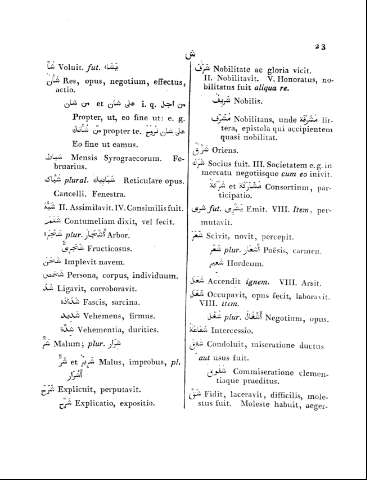 23
ش
شَآءَ Voluit. fut. يَشَاءُ
شَأْن Res, opus, negotium, effectus,
actio.
من شان et على شان i. q. من اجل
Propter, ut, eo fine ut: e. g.
من شانك propter te. على شان
Eo fine ut eamus.
شباط Mensis Syrograecorum. Fe-
bruarius.
شُبَّاك plural. شبابيك Reticulare opus.
Cancelli. Fenestra.
II. Assimilavit. IV. Consimilis fuit.
شتم Contumeliam dixit, vel fecit.
شجرة plur. أشجار Arbor.
Fructicosus.
شحن Implevit navem.
شخص Persona, corpus, individuum.
شدّ Ligavit, corroboravit.
شدادة Fascis, sarcina.
شديد Vehemens, firmus.
شدّة Vehementia, durities.
شرّ Malum; plur. شرار
شرير et شرّ Malus, improbus, pl.
أشرار
شرح Explicuit, perputavit.
شرح Explicatio, expositio.
شرف Nobilitate ac gloria vicit.
II. Nobilitavit. V. Honoratus, no-
bilitatus fuit aliqua re.
شريف Nobilis.
مشرّف Nobilitans, unde مشرّفة lit-
tera, epistola qui accipientem
quasi nobilitat.
شرق Oriens.
شرك Socius fuit. III. Societatem e. g. in
mercatu negotiisque cum eo inivit.
شركة et مشركة Consortium, par-
ticipatio.
شرى fut. يشرى Emit. VIII. Item, per-
mutavit.
شعر Scivit, novit, percepit.
شعر plur. أشعار Poësis, carmen.
شعير Hordeum.
شعل Accendit ignem. VIII. Arsit.
شغل Occupavit, opus fecit, laboravit.
VIII. item.
شغل plur. أشغال Negotium, opus.
شفاعة Intercessio.
شفق Condoluit, miseratione ductus
aut usus fuit.
شفوق Commiseratione clemen-
tiaque praeditus.
شقّ Fidit, laceravit, difficilis, mole-
stus fuit. Moleste habuit, aeger-